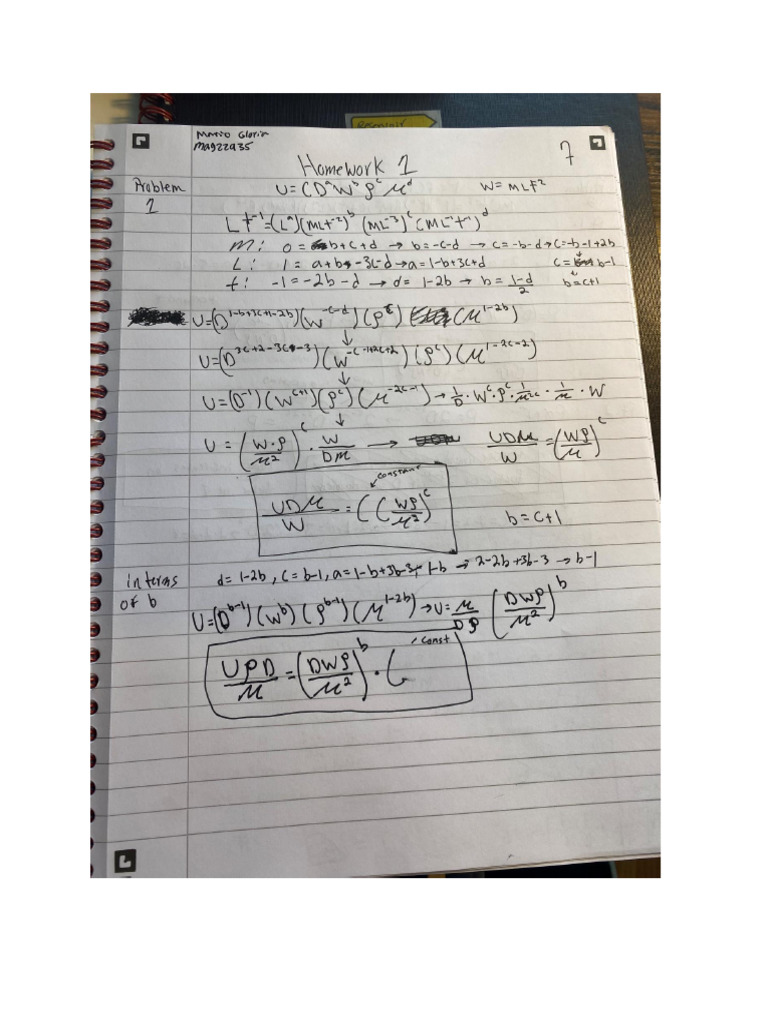 Mario Gloria
mag22935
Homework 1
7
Problem 1
U = C D^a W^b ρ^c μ^d
W = MLt^-2
Lt^-1 = (L^a)(MLt^-2)^b (ML^-3)^c (ML^-1t^-1)^d
m: 0 = b+c+d → b=-c-d → c=-b-d → c=-b-1+2b
L: 1 = a+b-3c-d → a=1-b+3c+d
c = b-1
t: -1 = -2b-d → d=1-2b → b=(1-d)/2
b=c+1
U=(D^(1-b+3c+1-2b))(W^(-c-d))(ρ^c)(μ^(1-2b))
↓
U=(D^(3c+2-3c-3))(W^(-c-1+2c+2))(ρ^c)(μ^(1-2c-2))
↓
U=(D^-1)(W^(c+1))(ρ^c)(μ^(-2c-1)) → 1/D · W^c · ρ^c · 1/μ^2c · 1/μ · W
↓
U = (W·ρ/μ^2)^c · W/Dμ → UDμ/W = (Wρ/μ)^c
constant
UDμ/W = C(Wρ/μ^2)^c
b=c+1
in terms of b
d=1-2b, c=b-1, a=1-b+3b-3+1-b → 2-2b+3b-3 → b-1
U=(D^(b-1))(W^b)(ρ^(b-1))(μ^(1-2b)) → U=μ/Dρ (DWρ/μ^2)^b
const
UρD/μ = (DWρ/μ^2)^b · C